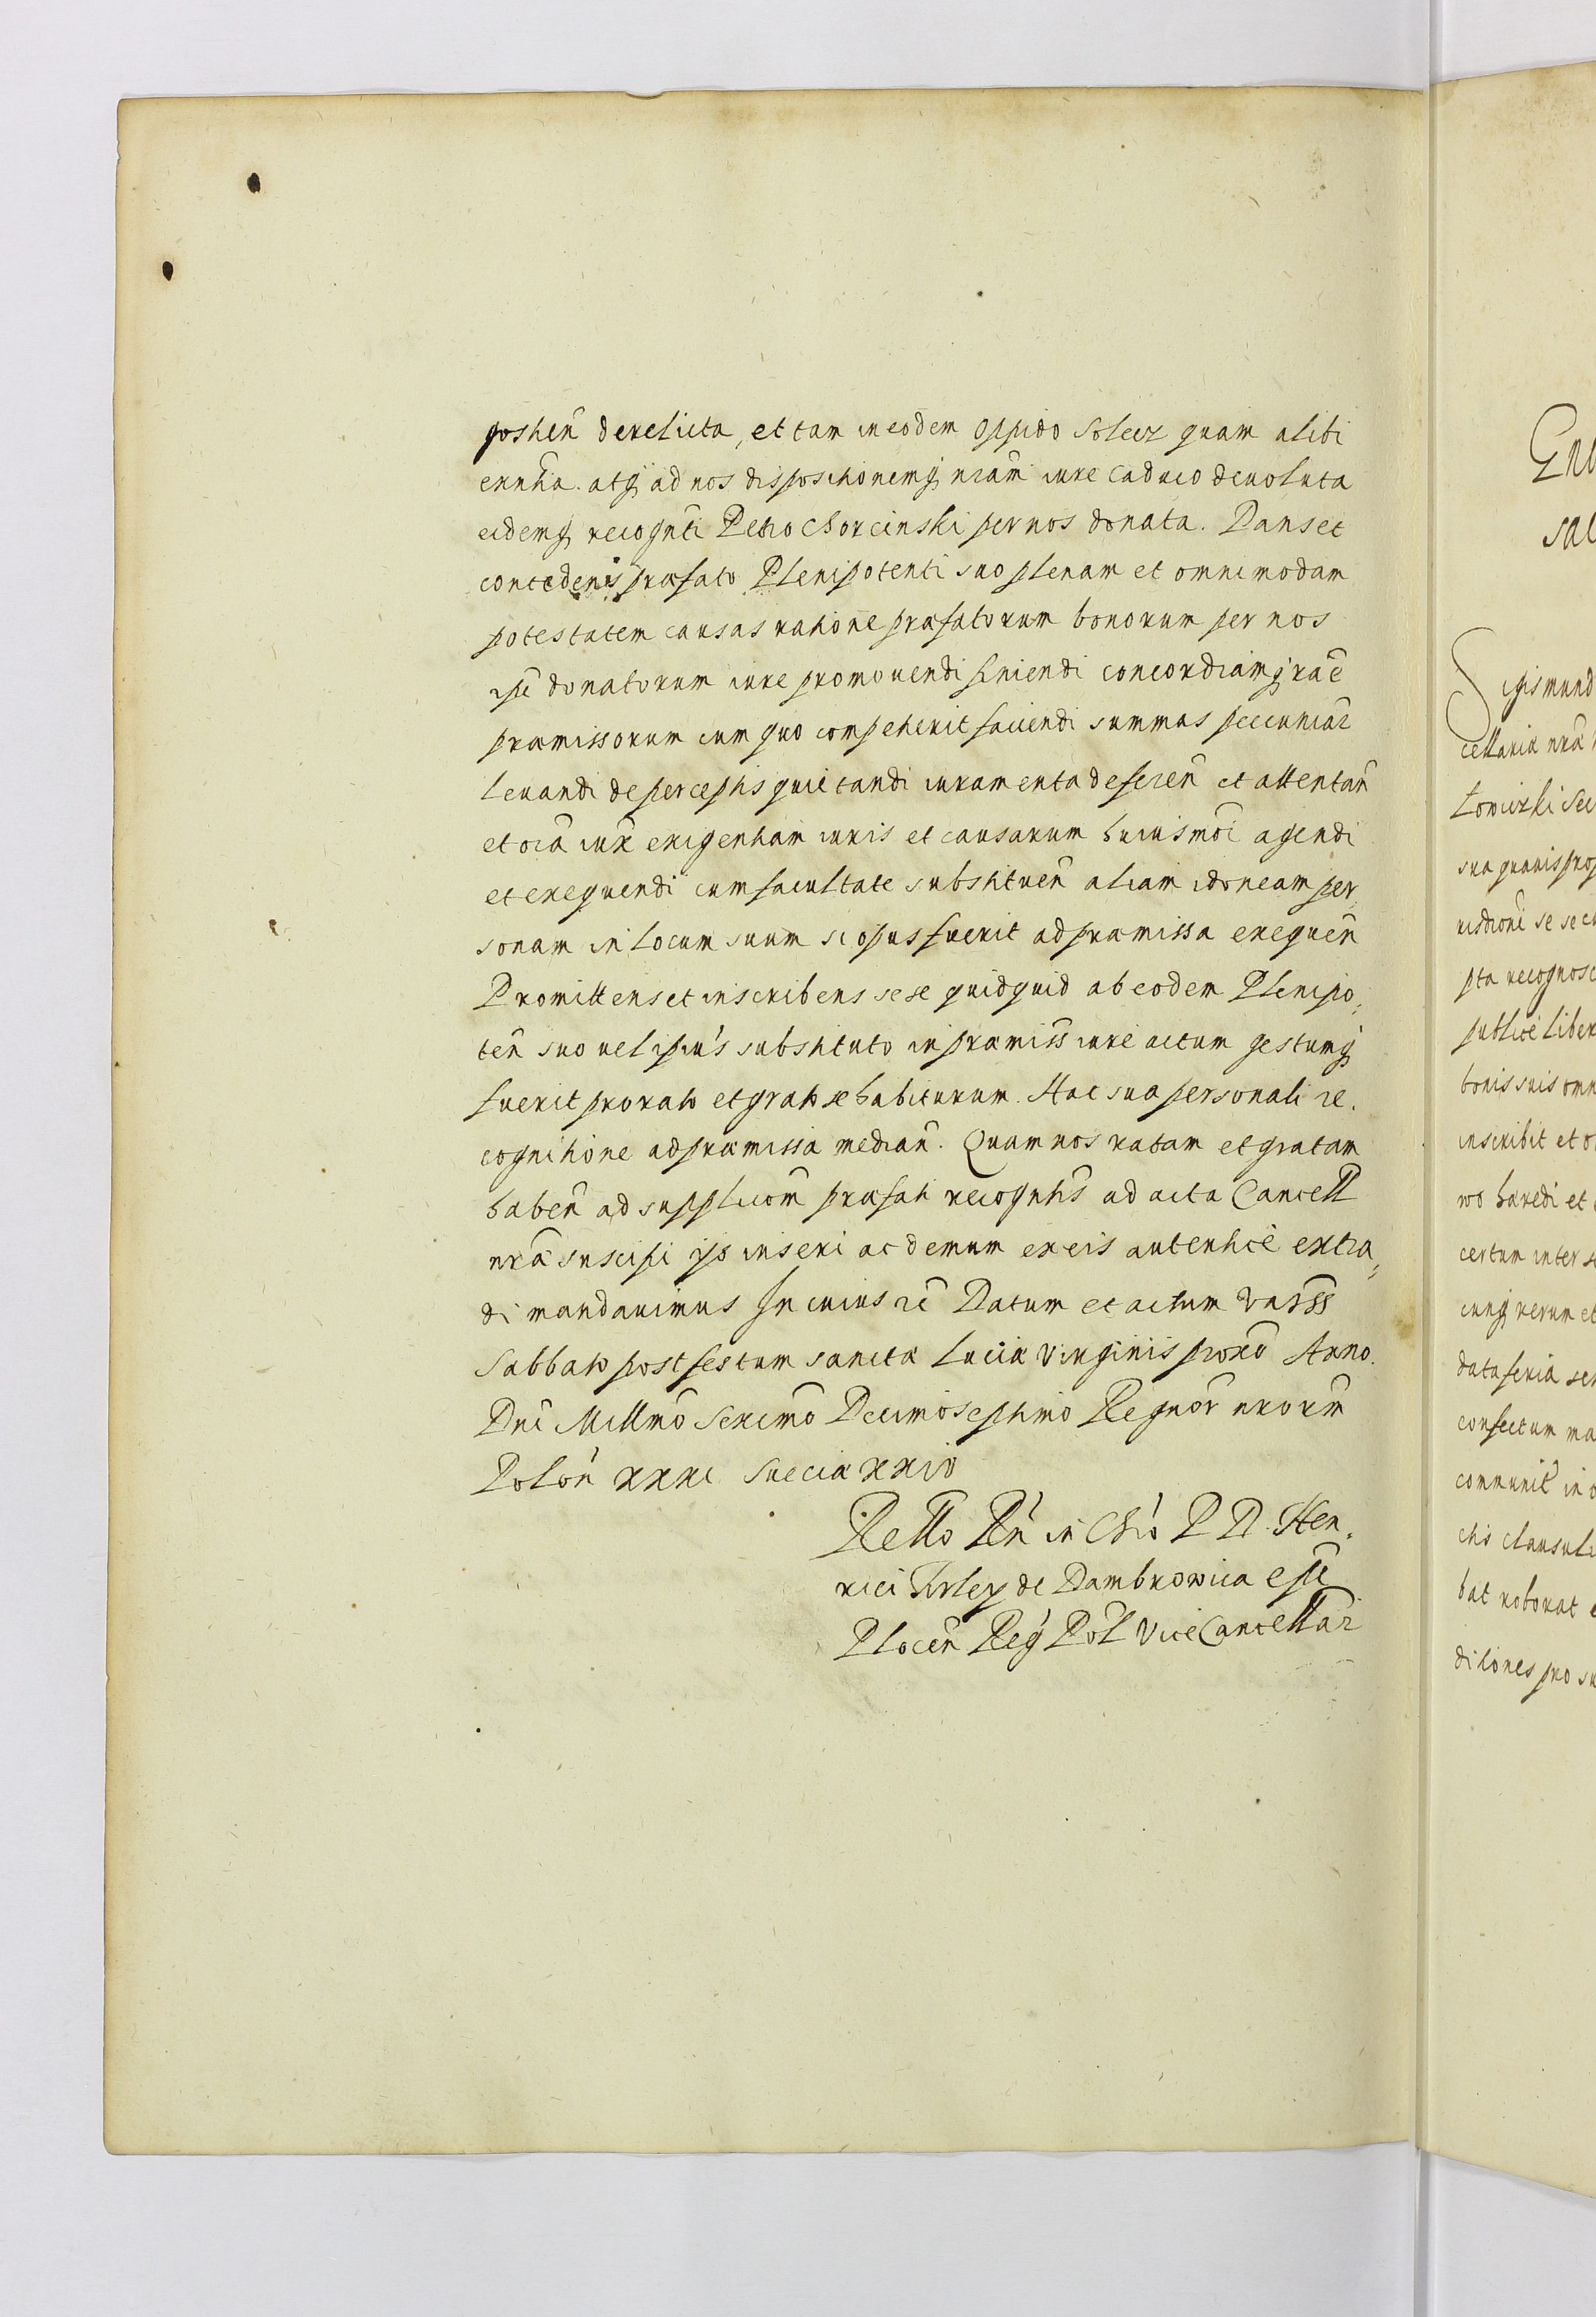 poshen̄ derelicta, et tam in eodem Oppido Solecz quam alibi
exn̄tia. atq₃ ad nos dispositionemq₃ nr̄am iure Caduco devoluta
eidemq₃ recogn̄ti Petro Chorcinski per nos donata. Dans et
concedens præfato Plenipotenti suo plenam et omnimodam
potestatem causas ratione præfatorum bonorum per nos
ipsi donatorum iure promouendi finiendi concordiamq₃ rāe
præmissorum cum quo competierit faciendi summas pecuniar
leuandi de perceptis quietandi iuramenta deferen̄ et attentan̄
et oīa iux exigentiam iuris et causarum huiusmōi agendi
et exequendi cum facultate substituen̄ aliam idoneam per,
sonam in locum suum si opus fuerit ad præmissa exequen̄
Promittens et inscribens sese quidquid ab eodem Plenipo,
ten̄ suo uel ipius substituto in præmiss iure actum gestumq₃
fuerit pro rato et grato se habiturum. Hac sua personali re,
cognitione ad præmissa median̄. Quam nos ratam et gratam
haben̄ ad supplicom̄ præfati recogn̄tis ad acta Cancell
nr̄æ suscipi ijs inseri ac demum ex eis autentice extra,
di mandauimus In cuius rē Datum et actum Varss
Sabbato post festum sanctæ Luciæ Virginis proxō Anno.
Dnī Millmō Sexcmō Decimoseptimo Regnor nrorm̄
Polon̄ xxxi Sueciæ xxiv
Rello Rn̄ in Chrō P D. Hen,
rici Firley de Dambrowica Epī
Plocen̄ Reg Pol ViceCancellar
En
sal
Sigismund
cellariæ nr̄æ
Łowiczki Sec
sua quauis prop
risdīoni se se
pta recognosc
publice liber
bonis suis omn
inscribit et o
wo hæredi et
certum inter se
cunq₃ rerum et
data feria se
confectum ma
communit in o
ctis clausuli
bat roborat e
ditiones pro su